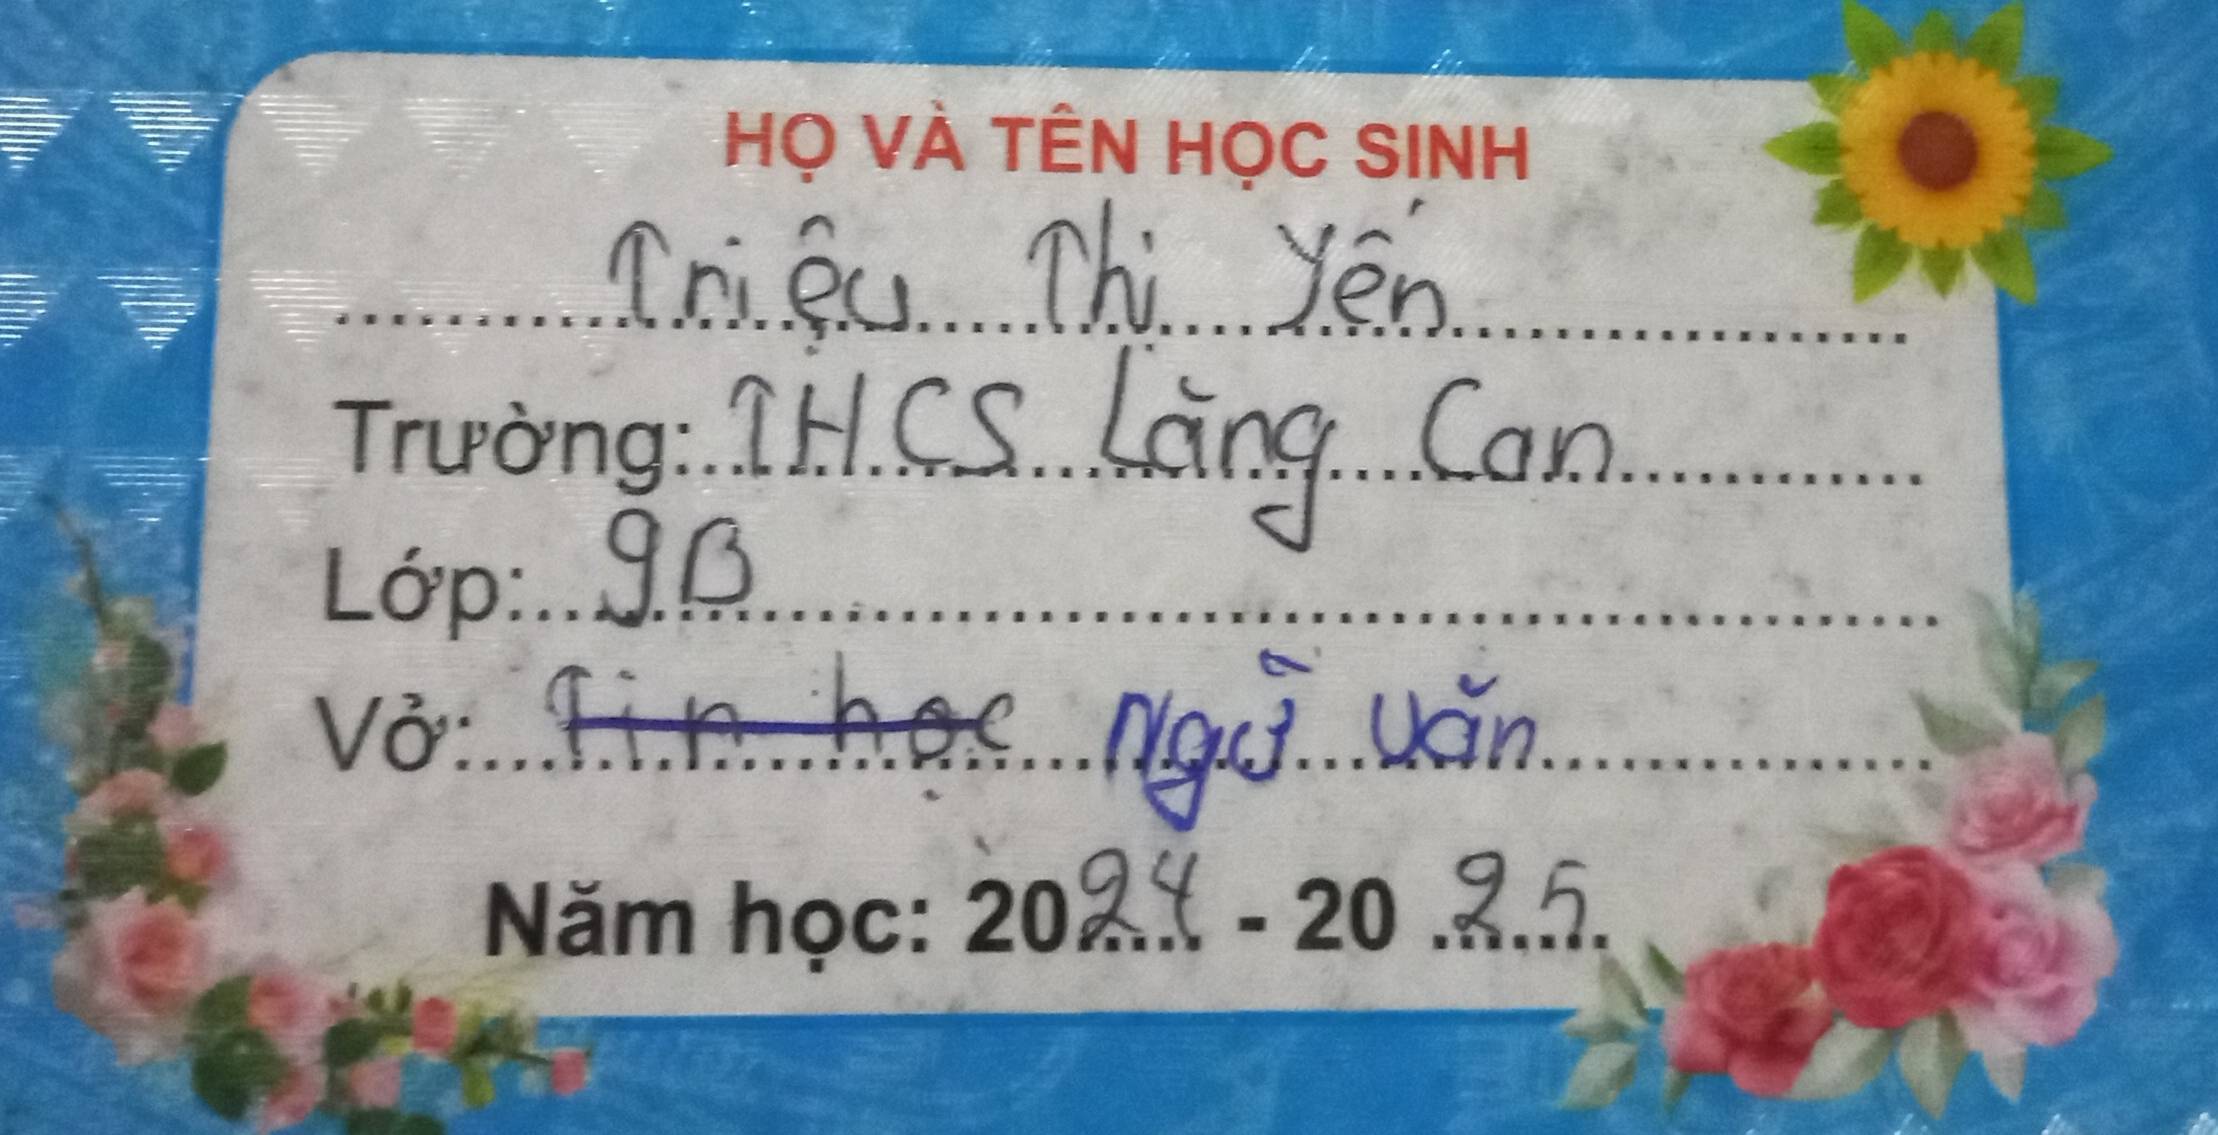 HỌ VÀ TÊN HỌC SINH
Triệu Thị Yến
Trường: THCS Lăng Can
Lớp: 9B
Vở: Tin học Ngữ Văn
Năm học: 2024 - 20 25